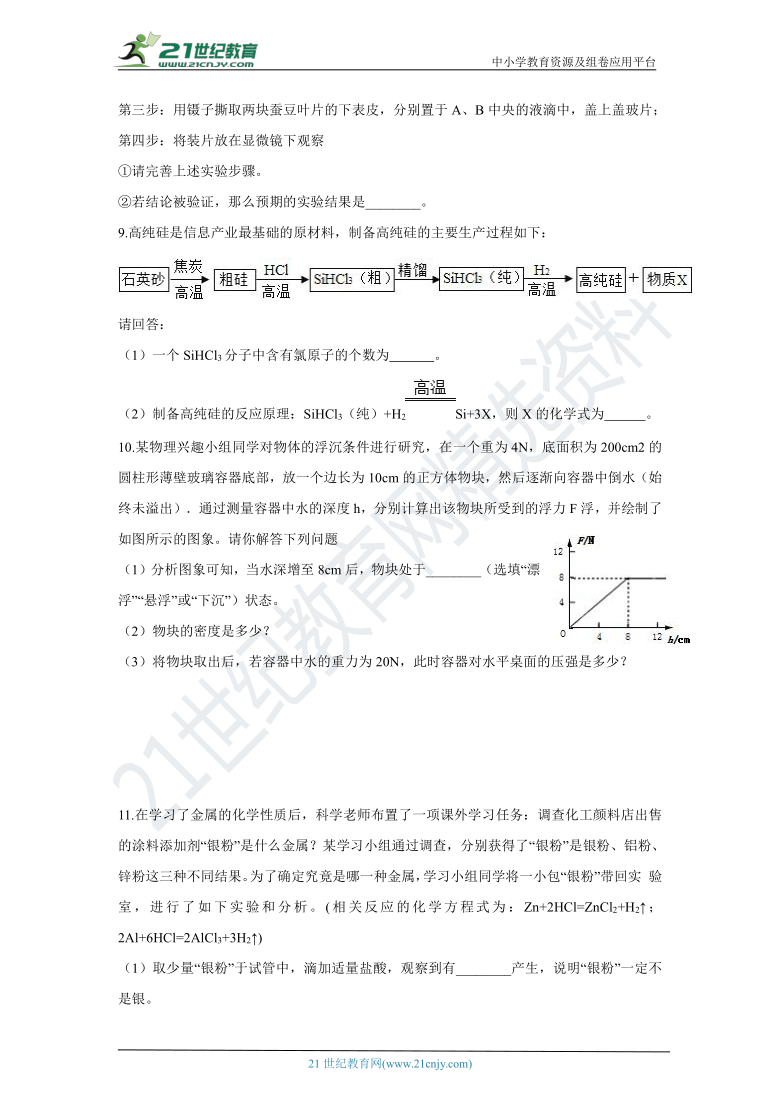 21世纪教育
WWW.21CNJY.COM
中小学教育资源及组卷应用平台
第三步：用镊子撕取两块蚕豆叶片的下表皮，分别置于 A、B 中央的液滴中，盖上盖玻片；
第四步：将装片放在显微镜下观察
①请完善上述实验步骤。
②若结论被验证，那么预期的实验结果是________。
9.高纯硅是信息产业最基础的原材料，制备高纯硅的主要生产过程如下：
石英砂 焦炭 高温 粗硅 HCl 高温 SiHCl3（粗） 精馏 SiHCl3（纯） H2 高温 高纯硅 + 物质X
请回答：
（1）一个 SiHCl3 分子中含有氯原子的个数为______。
高温
（2）制备高纯硅的反应原理：SiHCl3（纯）+H2 Si+3X，则 X 的化学式为______。
10.某物理兴趣小组同学对物体的浮沉条件进行研究，在一个重为 4N，底面积为 200cm2 的
圆柱形薄壁玻璃容器底部，放一个边长为 10cm 的正方体物块，然后逐渐向容器中倒水（始
终未溢出）．通过测量容器中水的深度 h，分别计算出该物块所受到的浮力 F 浮，并绘制了
如图所示的图象。请你解答下列问题
（1）分析图象可知，当水深增至 8cm 后，物块处于________（选填“漂
浮”“悬浮”或“下沉”）状态。
（2）物块的密度是多少？
（3）将物块取出后，若容器中水的重力为 20N，此时容器对水平桌面的压强是多少？
F/N
12
8
4
O 4 8 12 h/cm
11.在学习了金属的化学性质后，科学老师布置了一项课外学习任务：调查化工颜料店出售
的涂料添加剂“银粉”是什么金属？某学习小组通过调查，分别获得了“银粉”是银粉、铝粉、
锌粉这三种不同结果。为了确定究竟是哪一种金属，学习小组同学将一小包“银粉”带回实 验
室，进行了如下实验和分析。(相关反应的化学方程式为：Zn+2HCl=ZnCl2+H2↑；
2Al+6HCl=2AlCl3+3H2↑)
（1）取少量“银粉”于试管中，滴加适量盐酸，观察到有________产生，说明“银粉”一定不
是银。
21世纪教育网精选资料
21 世纪教育网(www.21cnjy.com)